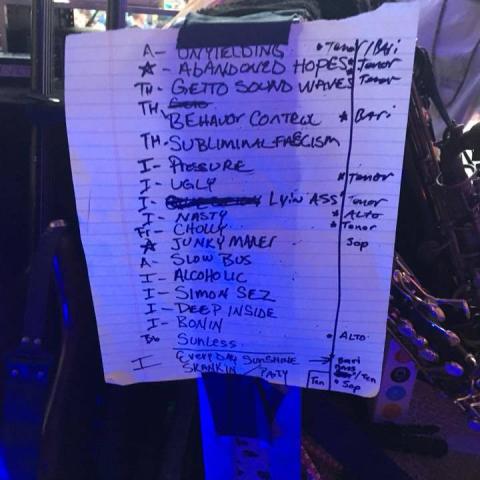 A- UNYIELDING • Tenor/Bari
★- ABANDONED HOPES • Tenor
TH- GETTO SOUND WAVES Tenor
TH.
BEHAVOR CONTROL • Bari
TH- SUBLIMINAL FACISM
I- PRESSURE
I- UGLY • Tenor
I- LYIN ASS Tenor
I- NASTY • ALTO
Fr- CHOLLY • Tenor
★ JUNKY MAKER Sop
A- SLOW BUS
I- ALCOHOLIC
I- SIMON SEZ
I- DEEP INSIDE
I- BONIN
SUNLESS • ALTO
I EVERYDAY SUNSHINE → Bari
SKANKIN / PARTY Ten • Sop